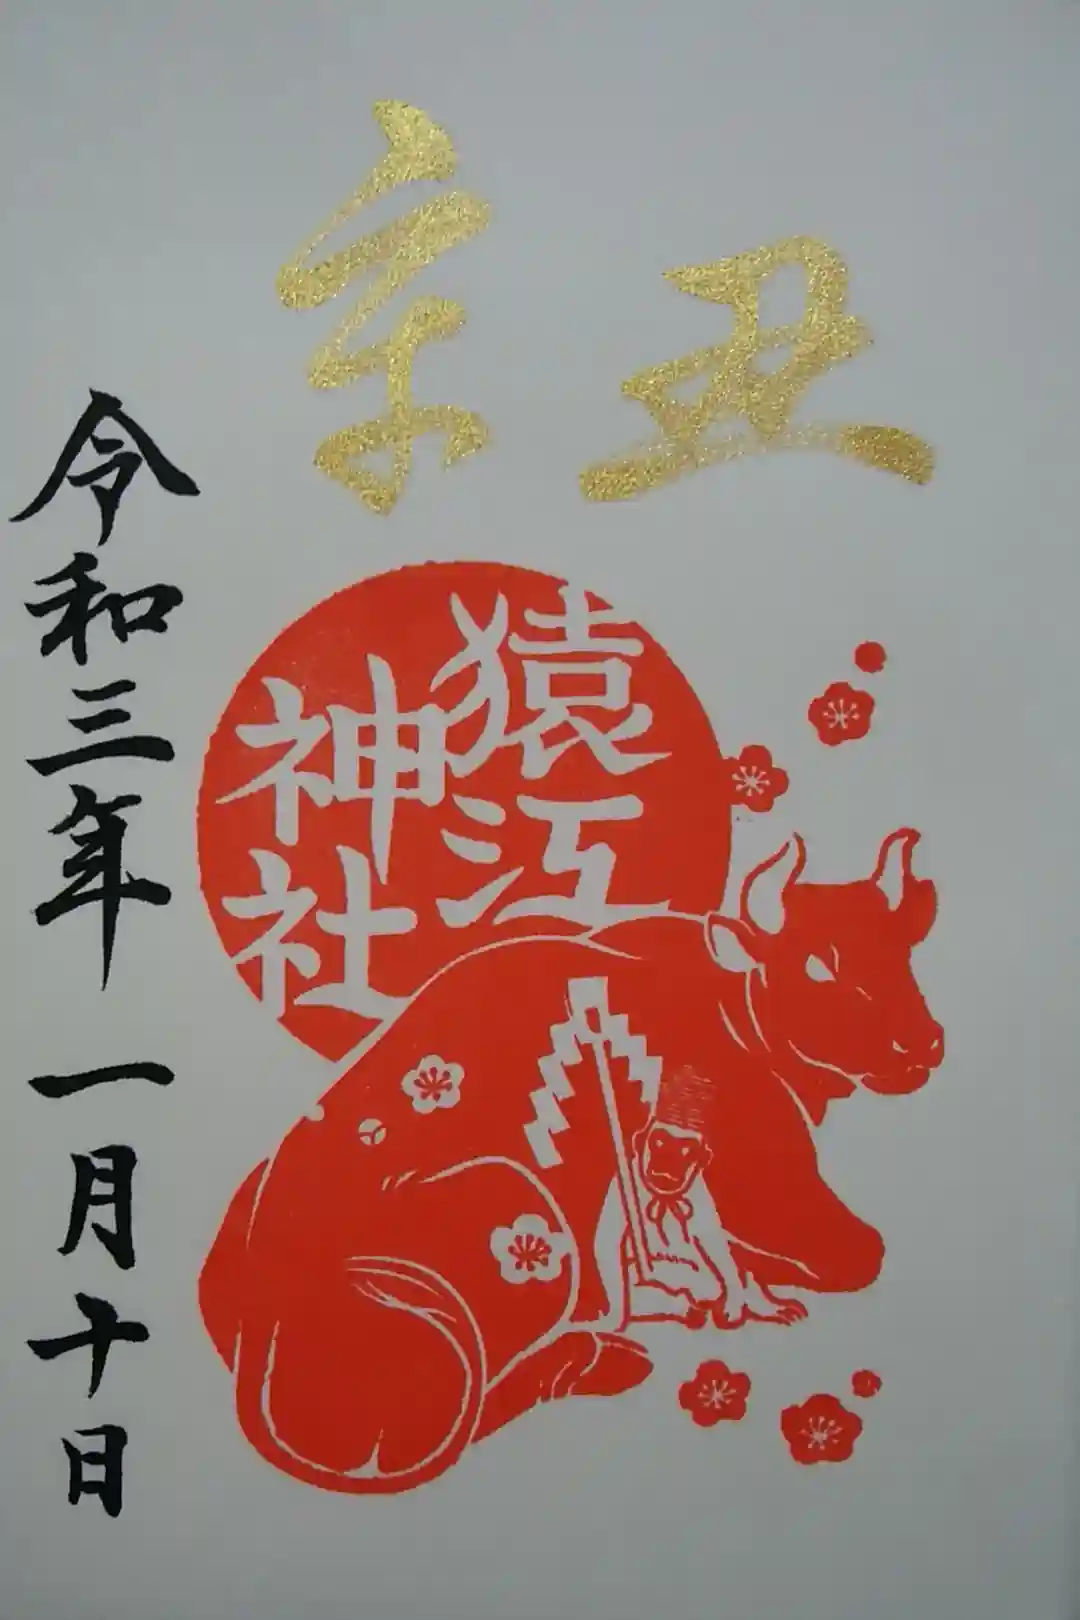 辛丑
猿江
神社
令和三年 一月十日